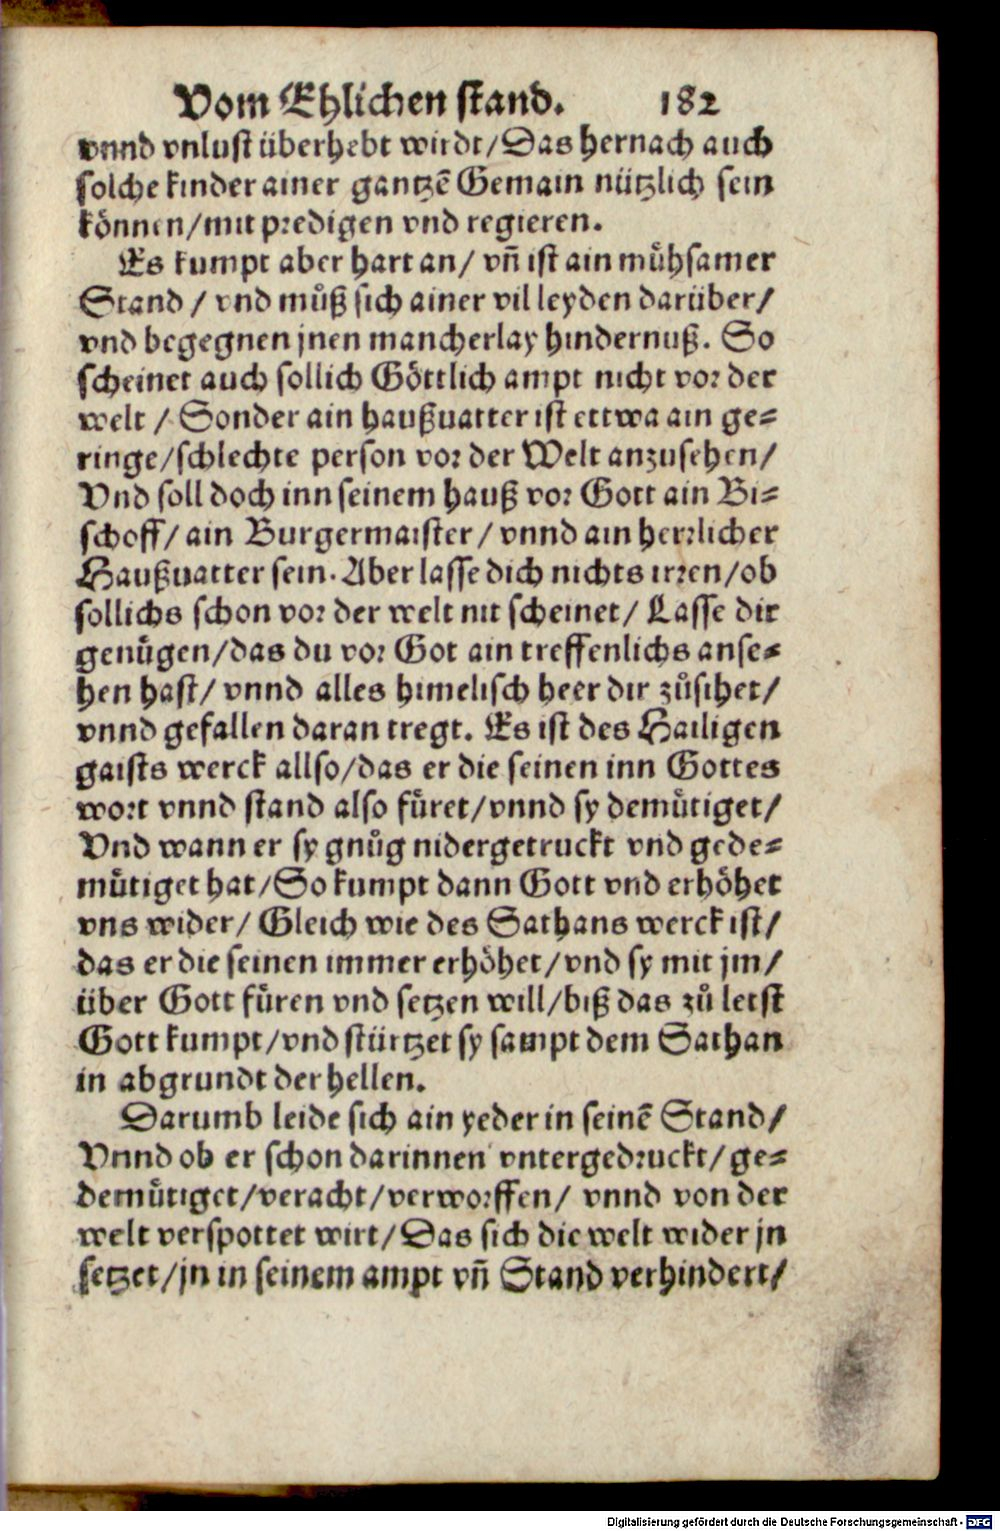 Vom Ehlichen stand. 182
vnnd vnlust überhebt wirdt/Das hernach auch
solche kinder ainer gantzē Gemain nützlich sein
können/mit predigen vnd regieren.
Es kumpt aber hart an/ vn̄ ist ain mühsamer
Stand / vnd muͦß sich ainer vil leyden darüber/
vnd begegnen jnen mancherlay hindernuß. So
scheinet auch sollich Göttlich ampt nicht vor der
welt / Sonder ain haußuatter ist ettwa ain ge-
ringe/schlechte person vor der Welt anzusehen/
Vnd soll doch inn seinem hauß vor Gott ain Bi-
schoff/ ain Burgermaister / vnnd ain herrlicher
Haußuatter sein. Aber lasse dich nichts irren/ob
sollichs schon vor der welt nit scheinet/ Lasse dir
genügen/das du vor Got ain treffenlichs anse-
hen hast/ vnnd alles himelisch heer dir zuͦsihet/
vnnd gefallen daran tregt. Es ist des Hailigen
gaists werck allso/das er die seinen inn Gottes
wort vnnd stand also füret/vnnd sy demütiget/
Vnd wann er sy gnuͦg nidergetruckt vnd gede-
mütiget hat/So kumpt dann Gott vnd erhöhet
vns wider/ Gleich wie des Sathans werck ist/
das er die seinen immer erhöhet/vnd sy mit jm/
über Gott füren vnd setzen will/biß das zuͦ letst
Gott kumpt/vnd stürtzet sy sampt dem Sathan
in abgrundt der hellen.
Darumb leide sich ain yeder in seinē Stand/
Vnnd ob er schon darinnen vntergedruckt/ ge-
demütiget/veracht/verworffen/ vnnd von der
welt verspottet wirt/Das sich die welt wider jn
setzet/jn in seinem ampt vn̄ Stand verhindert/
Digitalisierung gefördert durch die Deutsche Forschungsgemeinschaft - DFG